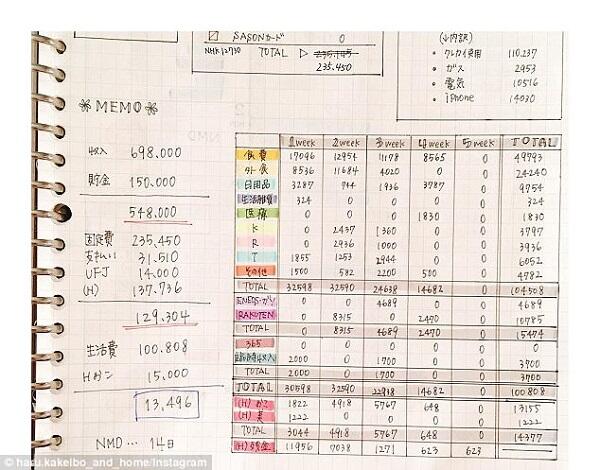 SAISONカード 0
NHK12730 TOTAL ▷ 235.445
235.450
(↓内訳)
• クレカイ使用 110.237
• ガス 2953
• 電気 10516
• iPhone 14030
※MEMO※
収入 698,000
貯金 150,000
548,000
固定費 235,450
支払い 31,510
UFJ 14,000
(H) 137,736
129,304
生活費 100,808
Hガソリン 15,000
13,496
NMD… 14日
1week 2week 3week 4week 5week TOTAL
食費 17096 12954 11178 8565 0 49793
外食 8536 11684 4020 0 0 24240
日用品 3287 744 1936 3787 0 9754
生活雑貨 324 0 0 0 0 324
医療 0 0 0 1830 0 1830
K 0 2437 1360 0 0 3797
R 0 2936 1000 0 0 3936
T 1855 1253 2944 0 0 6052
その他 1500 582 2200 500 0 4782
TOTAL 32598 32590 24638 14682 0 104508
ENEOS・ガソ 0 0 4689 0 0 4689
RAKUTEN 0 8315 0 2470 0 10785
TOTAL 0 8315 4689 2470 0 15474
365 0 0 0 0 0 0
臨時収入 2000 0 1700 0 0 3700
TOTAL 2000 0 1700 0 0 3700
TOTAL 30598 32590 22918 14682 0 100808
(H) 1822 4918 5767 648 0 13155
(H) 1222 0 0 0 0
TOTAL 3044 4918 5767 648 0 14377
(H) 11956 7038 1271 623 623
© haru.kakeibo_and_home/Instagram